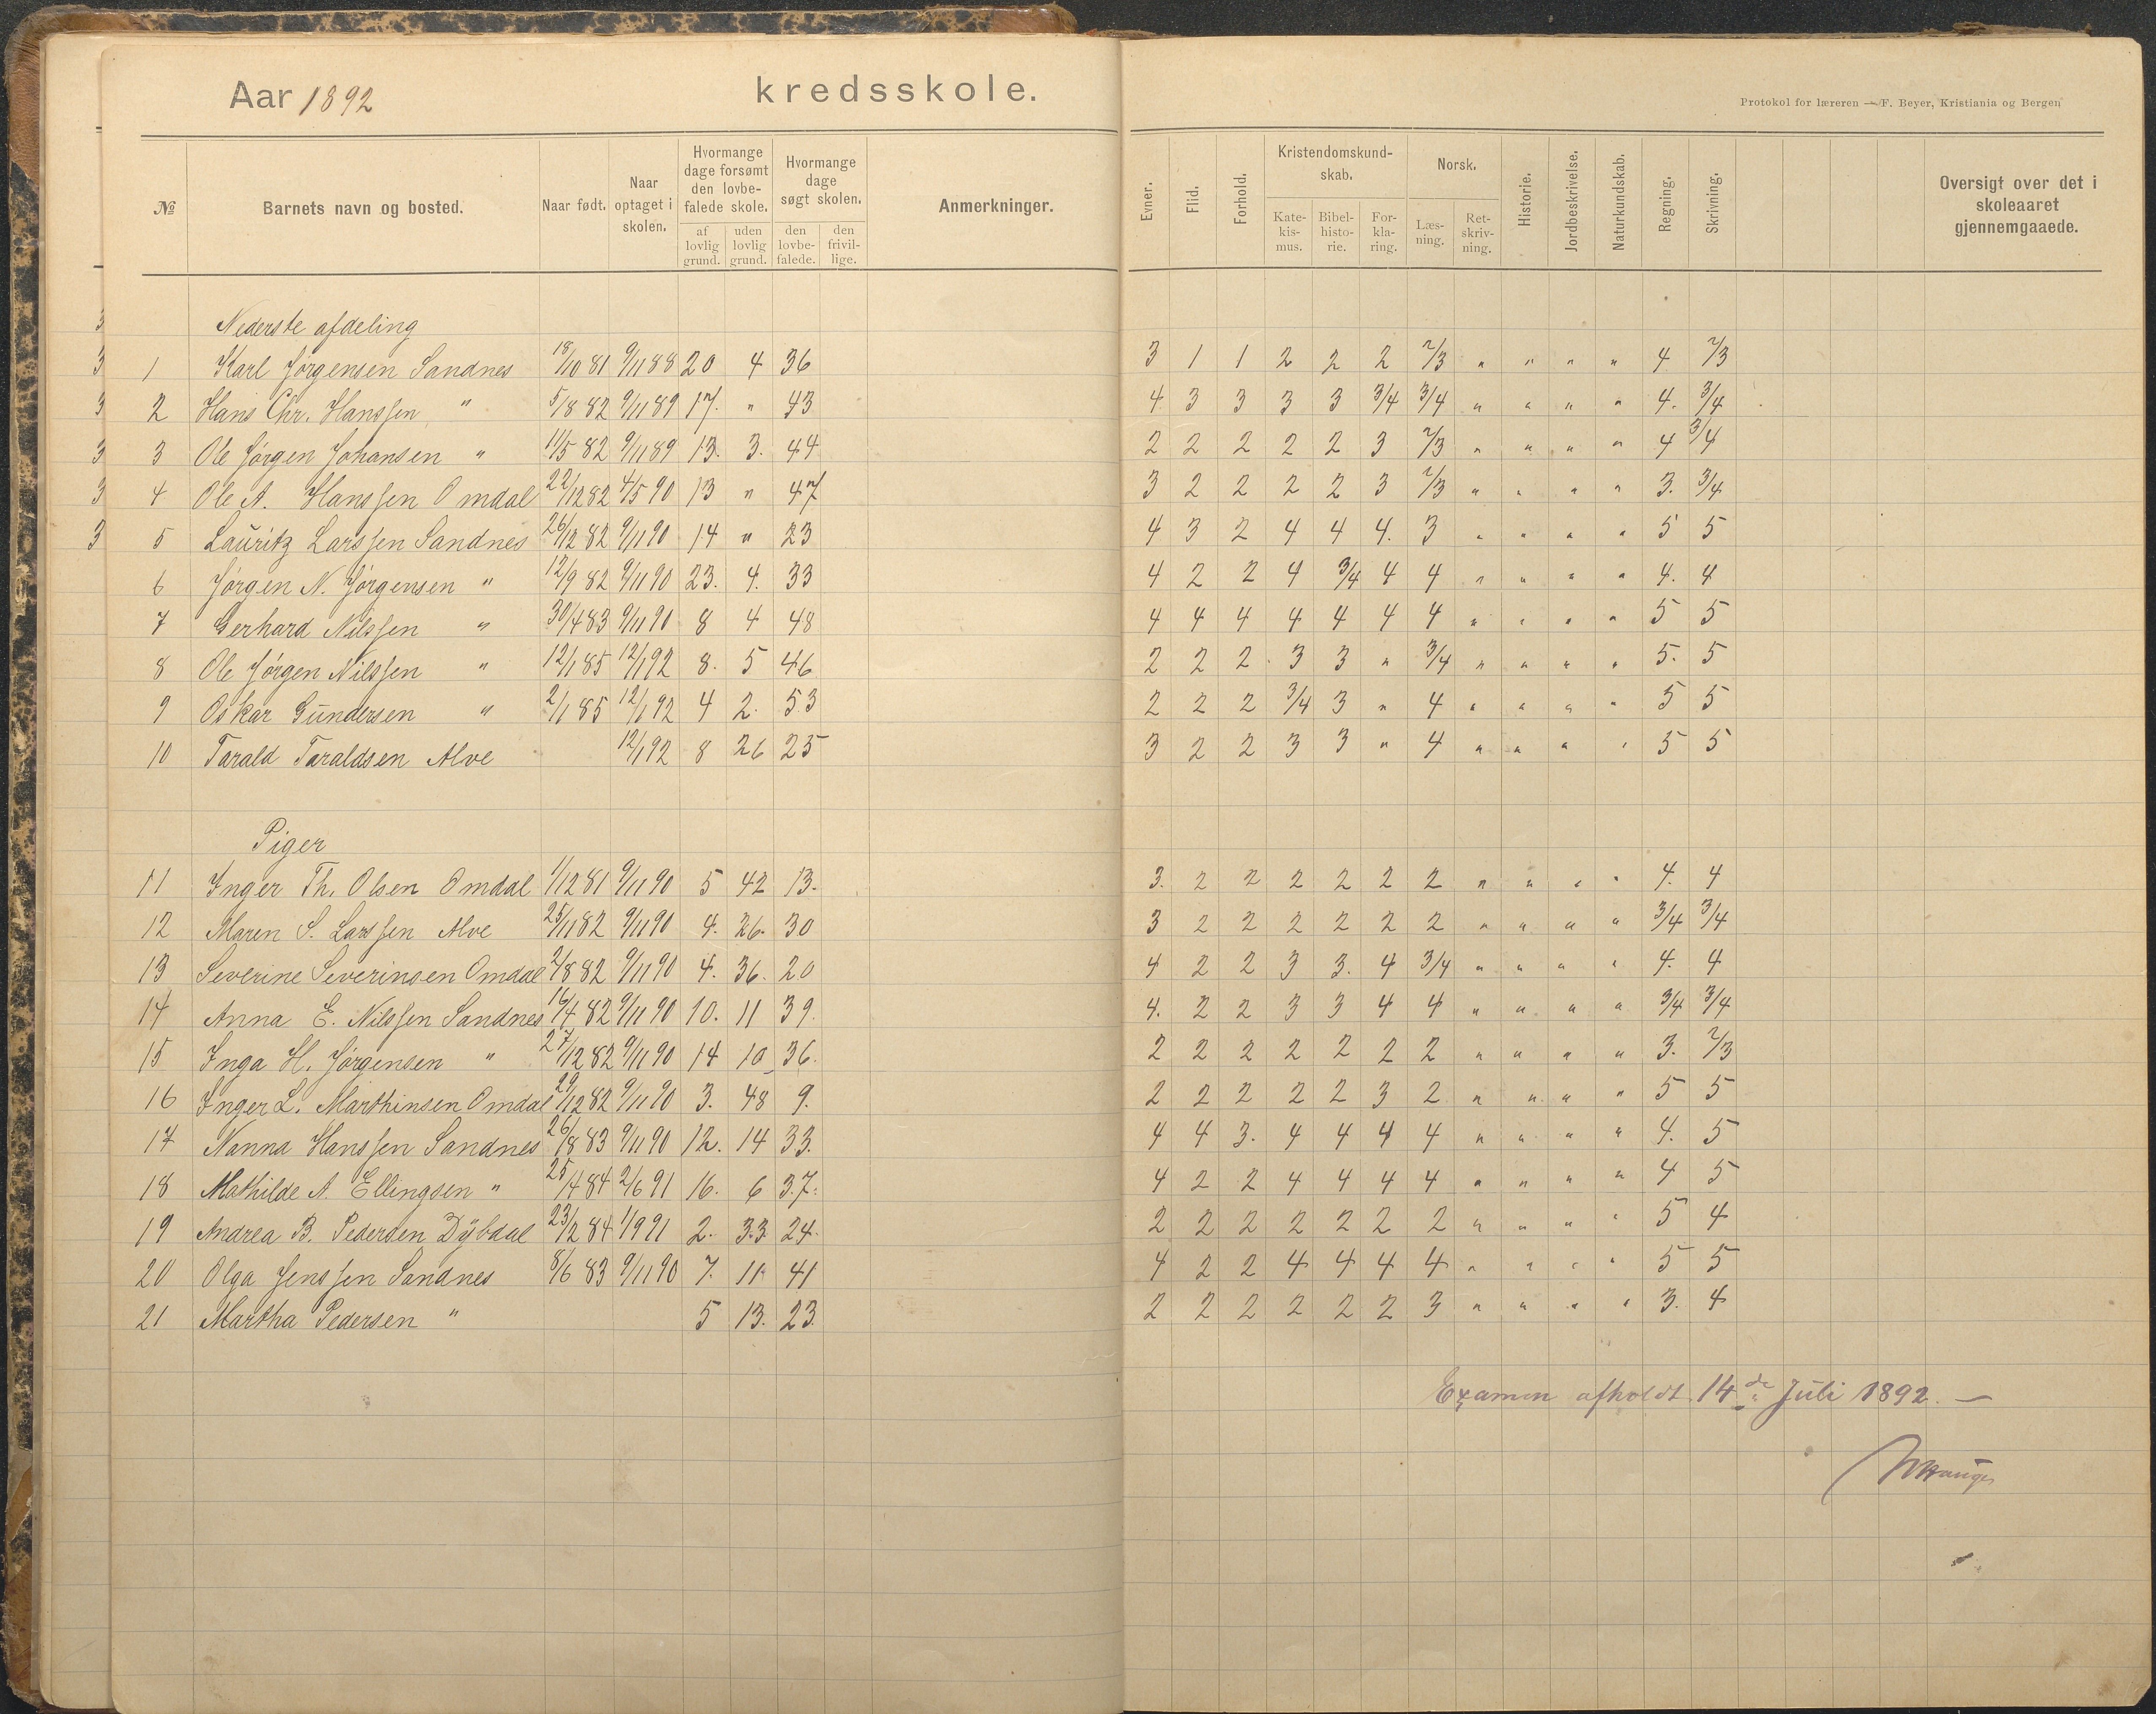 Aar 1892 kredsskole.
Protokol for læreren — F. Beyer, Kristiania og Bergen
№ Barnets navn og bosted. Naar født. Naar optaget i skolen. Hvormange dage forsømt den lovbefalede skole. af lovlig grund. uden lovlig grund. Hvormange dage søgt skolen. den lovbefalede. den frivillige. Anmerkninger. Evner. Flid. Forhold. Kristendomskundskab. Katekismus. Bibelhistorie. Forklaring. Norsk. Læsning. Retskrivning. Historie. Jordbeskrivelse. Naturkundskab. Regning. Skrivning. Oversigt over det i skoleaaret gjennemgaaede.
Nederste afdeling
1 Karl Jørgensen Sandnes 18/10 81 9/11 88 20 4 36 3 1 1 2 2 2 2/3 " " " " 4 2/3
2 Hans Chr. Hanssen " 5/8 82 9/11 89 17. " 43 4 3 3 3 3 3/4 3/4 " " " " 4. 3/4
3 Ole Jørgen Johansen " 11/5 82 9/11 89 13. 3. 44 2 2 2 2 2 3 2/3 " " " " 4 3/4
4 Ole A. Hanssen Omdal 22/12 82 4/5 90 13 " 47 3 2 2 2 2 3 2/3 " " " " 3. 3/4
5 Lauritz Larssen Sandnes 26/12 82 9/11 90 14 " 23 4 3 2 4 4 4. 3 " " " " 5 5
6 Jørgen N. Jørgensen " 12/9 82 9/11 90 23. 4. 33 4 2 2 4 3/4 4 4 " " " " 4. 4
7 Gerhard Nilssen " 30/4 83 9/11 90 8 4 48 4 4 4 4 4 4 4 " " " " 5 5
8 Ole Jørgen Nilssen " 12/1 85 12/1 92 8. 5 46 2 2 2 3 3 " 3/4 " " " " 5. 5
9 Oskar Gundersen " 2/1 85 12/1 92 4 2. 53 2 2 2 3/4 3 " 4 " " " " 5 5
10 Tarald Taraldsen Alve 12/1 92 8 26 25 3 2 2 3 3 " 4 " " " " 5 5
Piger
11 Inger Th. Olsen Omdal 1/12 81 9/11 90 5 42 13. 3. 2 2 2 2 2 2 " " " " 4. 4
12 Maren S. Larssen Alve 25/11 82 9/11 90 4. 26. 30 3 2 2 2 2 2 2 " " " " 3/4 3/4
13 Severine Severinsen Omdal 2/8 82 9/11 90 4. 36. 20 4 2 2 3 3. 4 3/4 " " " " 4. 4
14 Anna E. Nilssen Sandnes 16/4 82 9/11 90 10. 11 39. 4. 2 2 3 3 4 4 " " " " 3/4 3/4
15 Inga H. Jørgensen " 27/12 82 9/11 90 14 10 36. 2 2 2 2 2 2 2 " " " " 3. 2/3
16 Inger L. Marthinsen Omdal 29/12 82 9/11 90 3. 48 9. 2 2 2 2 2 3 2 " " " " 5 5
17 Nanna Hanssen Sandnes 26/8 83 9/11 90 12. 14 33. 4 4 3. 4 4 4 4 " " " " 4. 5
18 Mathilde A. Ellingsen " 25/4 84 2/6 91 16. 6 37. 4 2 2 4 4 4 4 " " " " 4 5
19 Andrea B. Pedersen Dybdal 23/2 84 1/9 91 2. 33. 24. 2 2 2 2 2 2 2 " " " " 5 4
20 Olga Jenssen Sandnes 8/6 83 9/11 90 7. 11 41 4 2 2 4 4 4 4 " " " " 5 5
21 Martha Pedersen " 5 13. 23. 2 2 2 2 2 2 3 " " " " 3. 4
Examen afholdt 14de Juli 1892. —